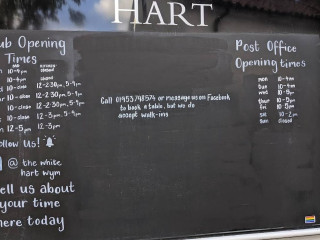 HART
ub Opening
Times
BAR KITCHEN
10-4pm closed
10-4pm closed
10-close 12-2:30pm, 5-9pm
10-close 12-2:30pm, 5-9pm
10-close 12-2:30pm, 5-9pm
10-close 12-3pm, 5-9pm
12-5pm 12-3pm
ollow Us!
@ the white
hart wym
ell us about
your time
here today
Call 01953 or message us on Facebook
to book a table, but we do
accept walk-ins
Post Office
Opening times
mon 10-4pm
tue 10-4pm
wed 10-5pm
thur 10-5pm
fri 10-5pm
sat 10-2pm
sun closed